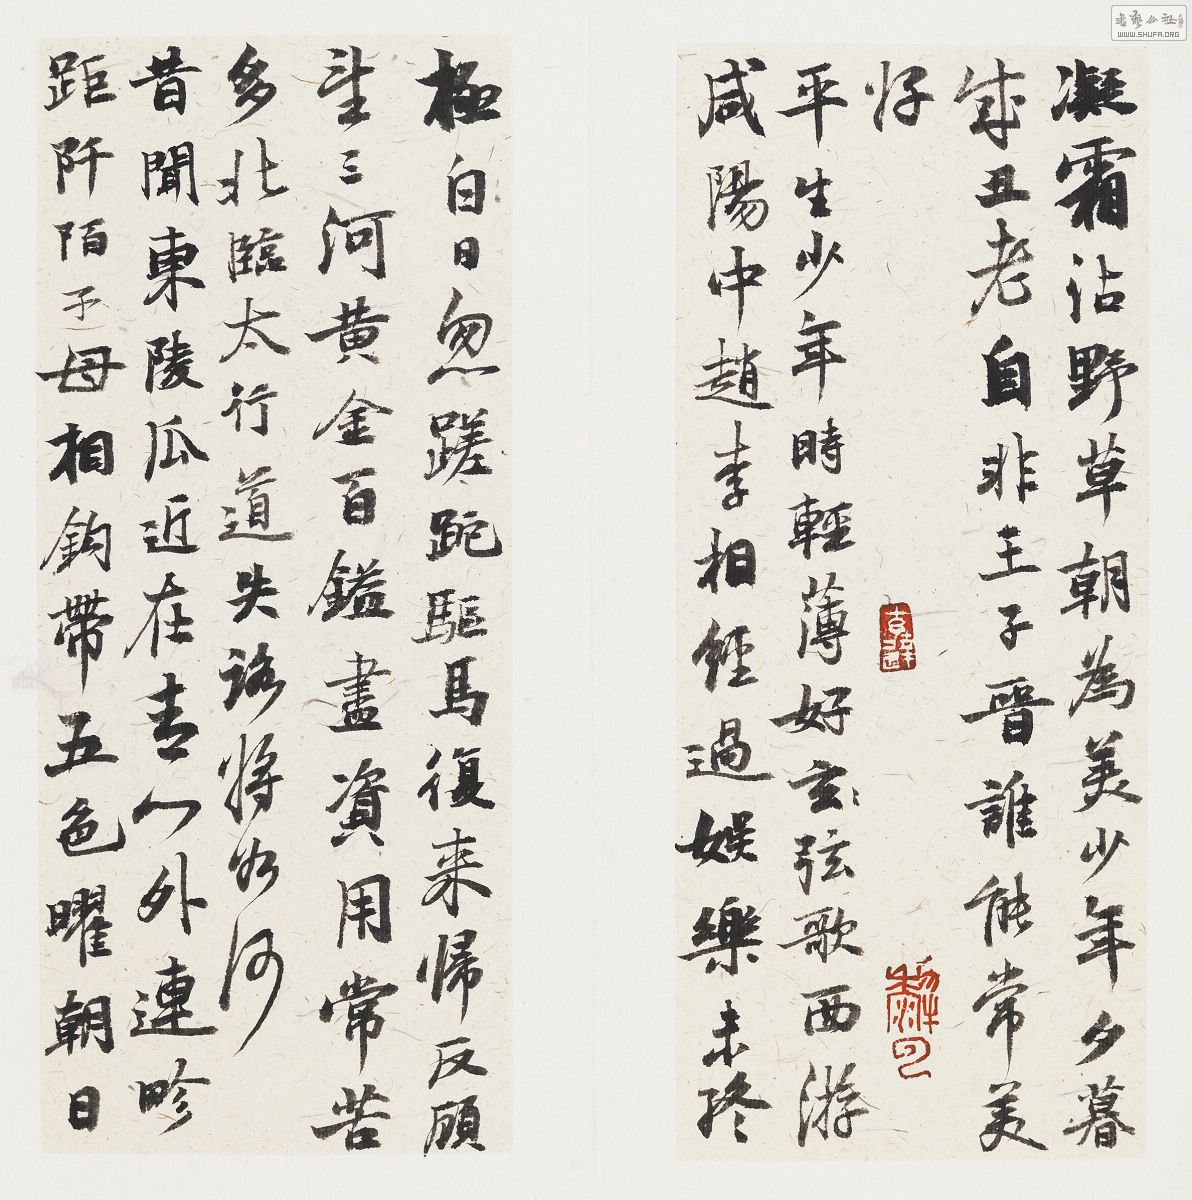 凝霜沾野草朝為美少年夕暮
成丑老自非王子晉誰能常美
好
平生少年時輕薄好玄弦歌西游
咸陽中趙李相經過娛樂未終
極白日忽蹉跎驅馬復来帰反顧
望三河黃金百鎰盡資用常苦
多北臨太行道失路將如何
昔聞東陵瓜近在青門外連畛
距阡陌子母相鈎帶五色曜朝日
書藝公社
WWW.SHUFA.ORG